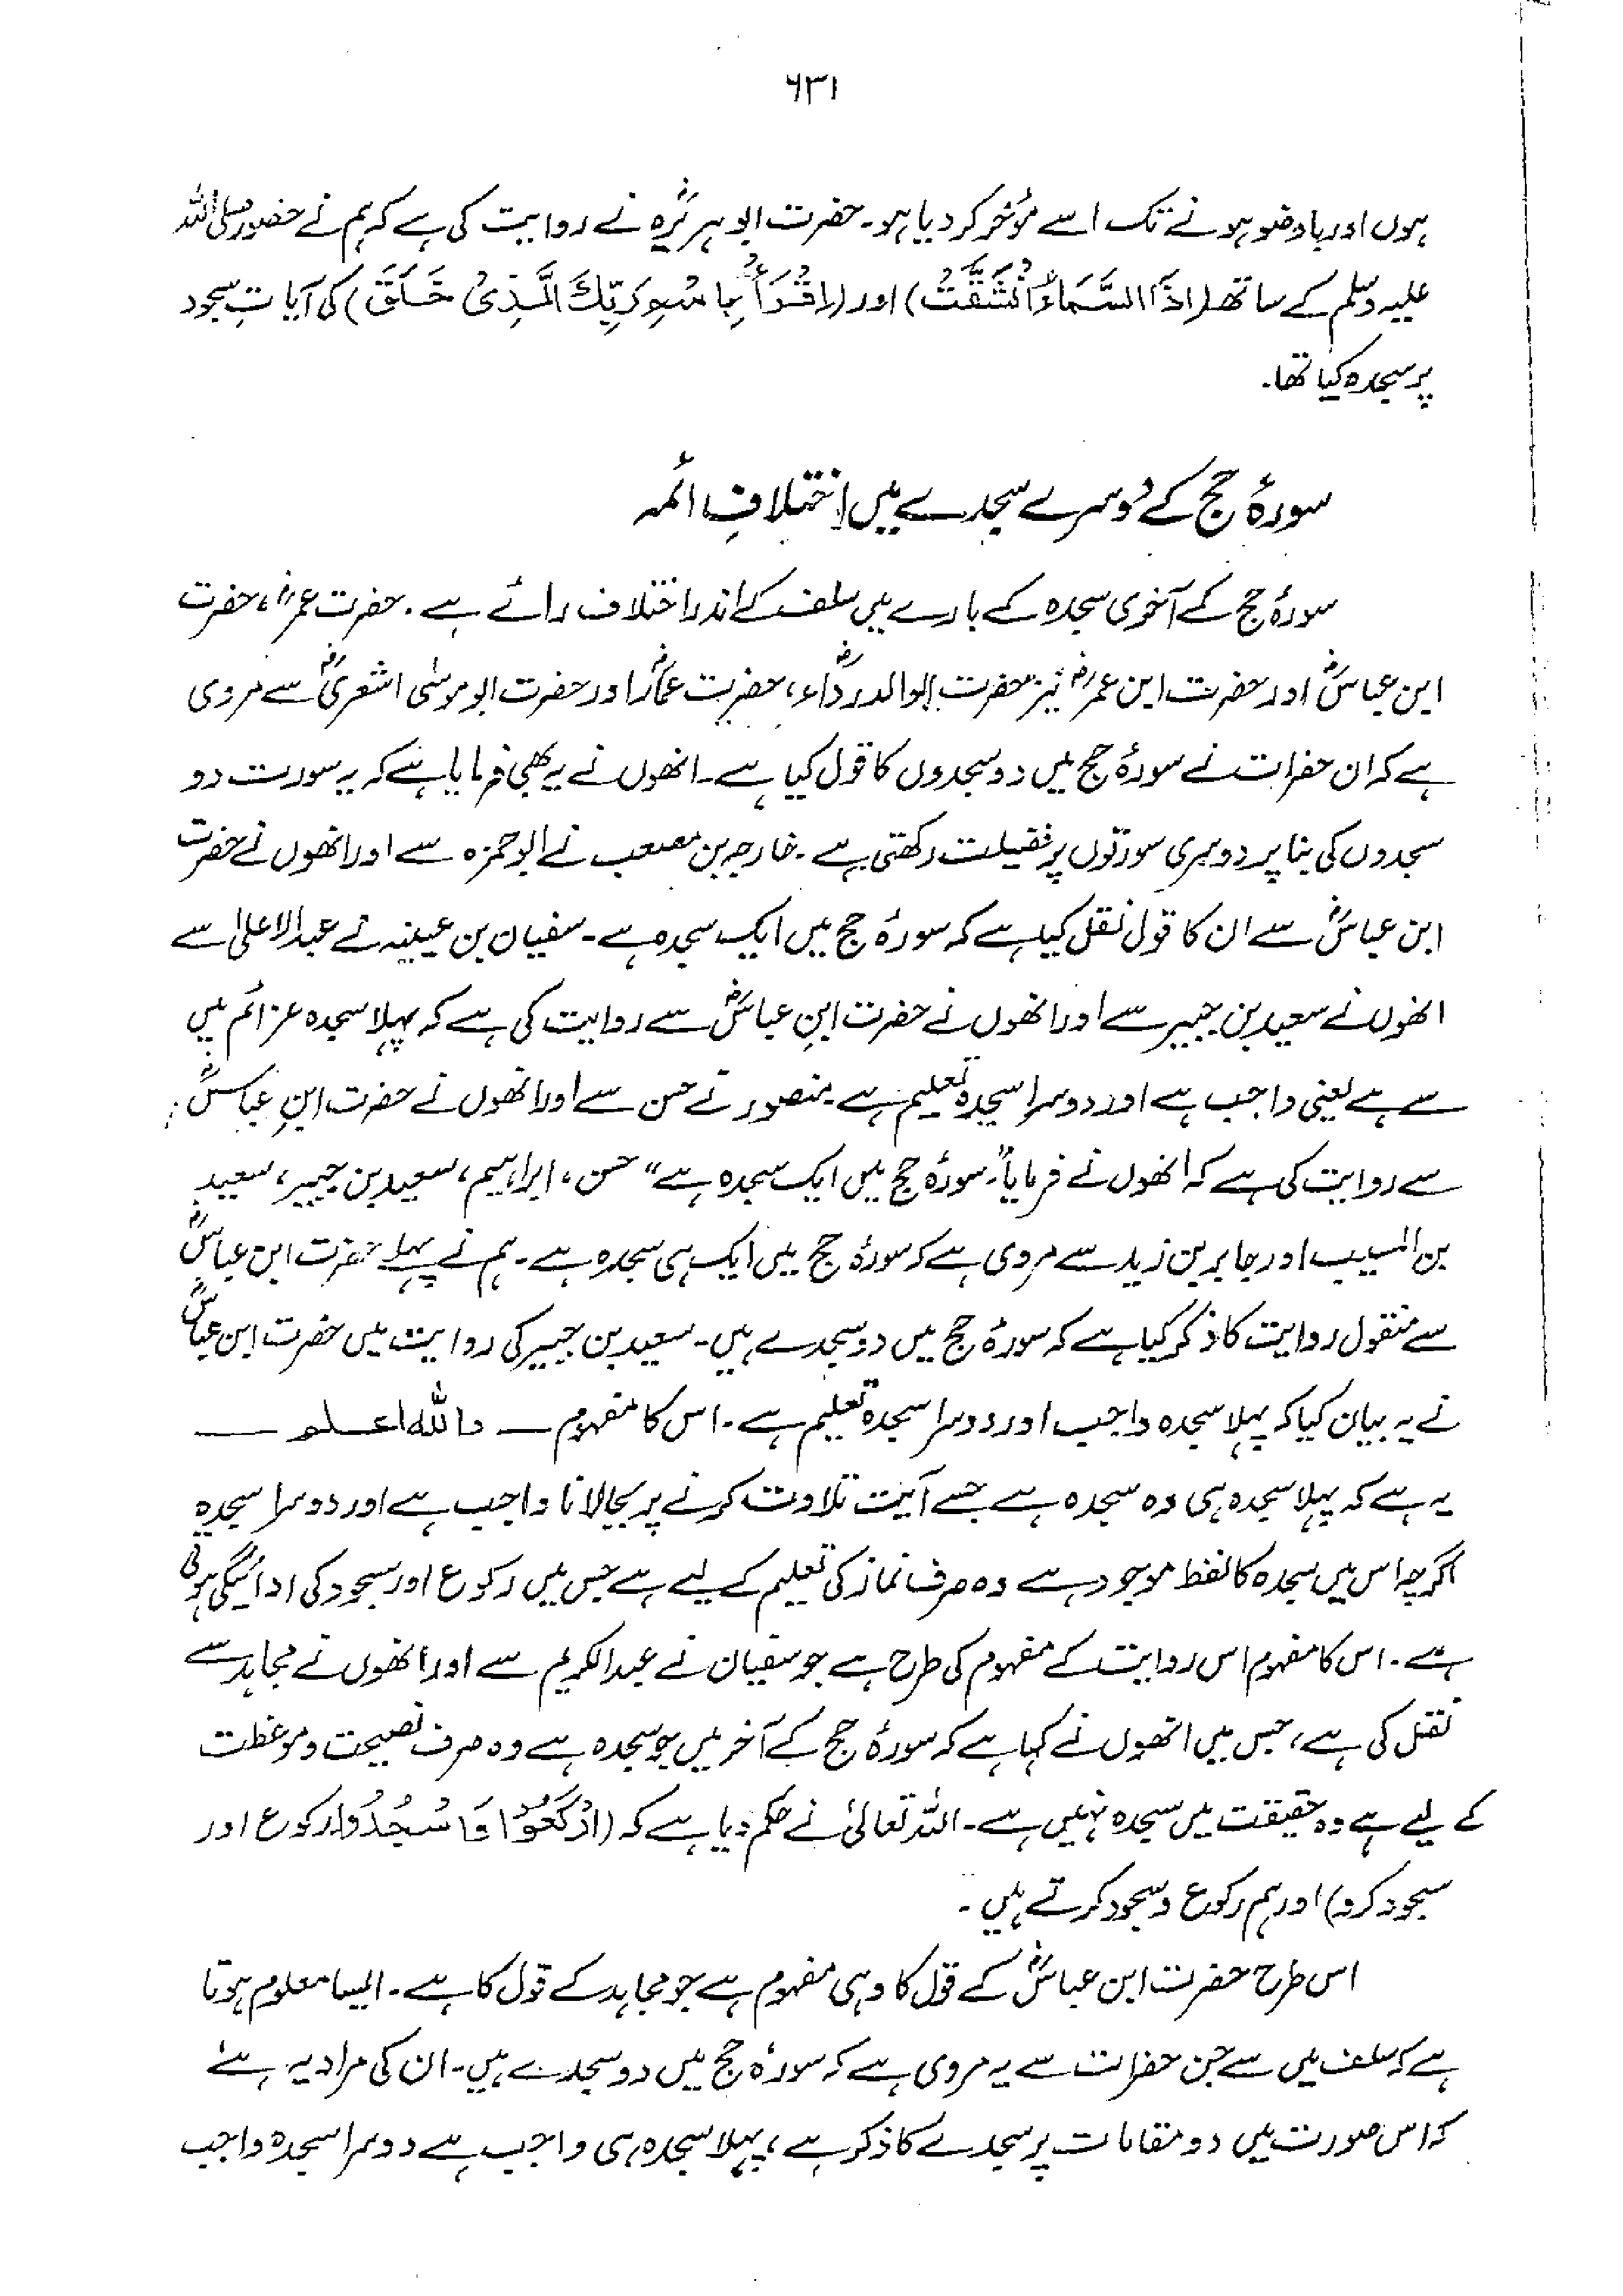 ۶۳۱
ہوں اور باوضو ہونے تک اسے مؤخر کر دیا ہو۔ حضرت ابوہریرہؓ نے روایت کی ہے کہ ہم نے حضور صلی اللہ
علیہ وسلم کے ساتھ (اِذَا السَّمَاءُ انْشَقَّتْ) اور (اِقْرَأْ بِاسْمِ رَبِّكَ الَّذِیْ خَلَقَ) کی آیاتِ سجود
پر سجدہ کیا تھا۔
سورۂ حج کے دوسرے سجدے میں اختلافِ ائمہ
سورۂ حج کے آخری سجدہ کے بارے میں سلف کے اندر اختلاف رائے ہے۔ حضرت عمرؓ، حضرت
ابن عباسؓ اور حضرت ابن عمرؓ نیز حضرت ابوالدرداءؓ، حضرت عمارؓ اور حضرت ابوموسٰی اشعریؓ سے مروی
ہے کہ ان حضرات نے سورۂ حج میں دو سجدوں کا قول کیا ہے۔ انھوں نے یہ بھی فرمایا ہے کہ یہ سورت دو
سجدوں کی بنا پر دوسری سورتوں پر فضیلت رکھتی ہے۔ خارجہ بن مصعب نے ابوحمزہ سے اور انھوں نے حضرت
ابن عباسؓ سے ان کا قول نقل کیا ہے کہ سورۂ حج میں ایک سجدہ ہے۔ سفیان بن عیینہ نے عبدالاعلیٰ سے
انھوں نے سعید بن جبیر سے اور انھوں نے حضرت ابنِ عباسؓ سے روایت کی ہے کہ پہلا سجدہ عزائم میں
سے ہے یعنی واجب ہے اور دوسرا سجدہ تعلیم ہے۔ منصور نے حسن سے اور انھوں نے حضرت ابنِ عباسؓ
سے روایت کی ہے کہ انھوں نے فرمایا "سورۂ حج میں ایک سجدہ ہے" حسن، ابراہیم، سعید بن جبیر، سعید
بن المسیب اور جابر بن زید سے مروی ہے کہ سورۂ حج میں ایک ہی سجدہ ہے۔ ہم نے پہلے حضرت ابن عباسؓ
سے منقول روایت کا ذکر کیا ہے کہ سورۂ حج میں دو سجدے ہیں۔ سعید بن جبیر کی روایت میں حضرت ابن عباسؓ
نے یہ بیان کیا کہ پہلا سجدہ واجب اور دوسرا سجدہ تعلیم ہے۔ اس کا مفہوم — واللہ اعلم —
یہ ہے کہ پہلا سجدہ ہی وہ سجدہ ہے جسے آیت تلاوت کرنے پر بجالانا واجب ہے اور دوسرا سجدہ
اگرچہ اس میں سجدہ کا لفظ موجود ہے وہ صرف نماز کی تعلیم کے لیے ہے جس میں رکوع اور سجود کی ادائیگی ہوتی
ہے۔ اس کا مفہوم اس روایت کے مفہوم کی طرح ہے جو سفیان نے عبدالکریم سے اور انھوں نے مجاہد سے
نقل کی ہے، جس میں انھوں نے کہا ہے کہ سورۂ حج کے آخر میں جو سجدہ ہے وہ صرف نصیحت و موعظت
کے لیے ہے وہ حقیقت میں سجدہ نہیں ہے۔ اللہ تعالیٰ نے حکم دیا ہے کہ (اِرْكَعُوْا وَاسْجُدُوْا رکوع اور
سجود کرو) اور ہم رکوع و سجود کرتے ہیں۔
اس طرح حضرت ابن عباسؓ کے قول کا وہی مفہوم ہے جو مجاہد کے قول کا ہے۔ ایسا معلوم ہوتا
ہے کہ سلف میں سے جن حضرات سے یہ مروی ہے کہ سورۂ حج میں دو سجدے ہیں۔ ان کی مراد یہ ہے
کہ اس صورت میں دو مقامات پر سجدے کا ذکر ہے، پہلا سجدہ ہی واجب ہے دوسرا سجدہ واجب